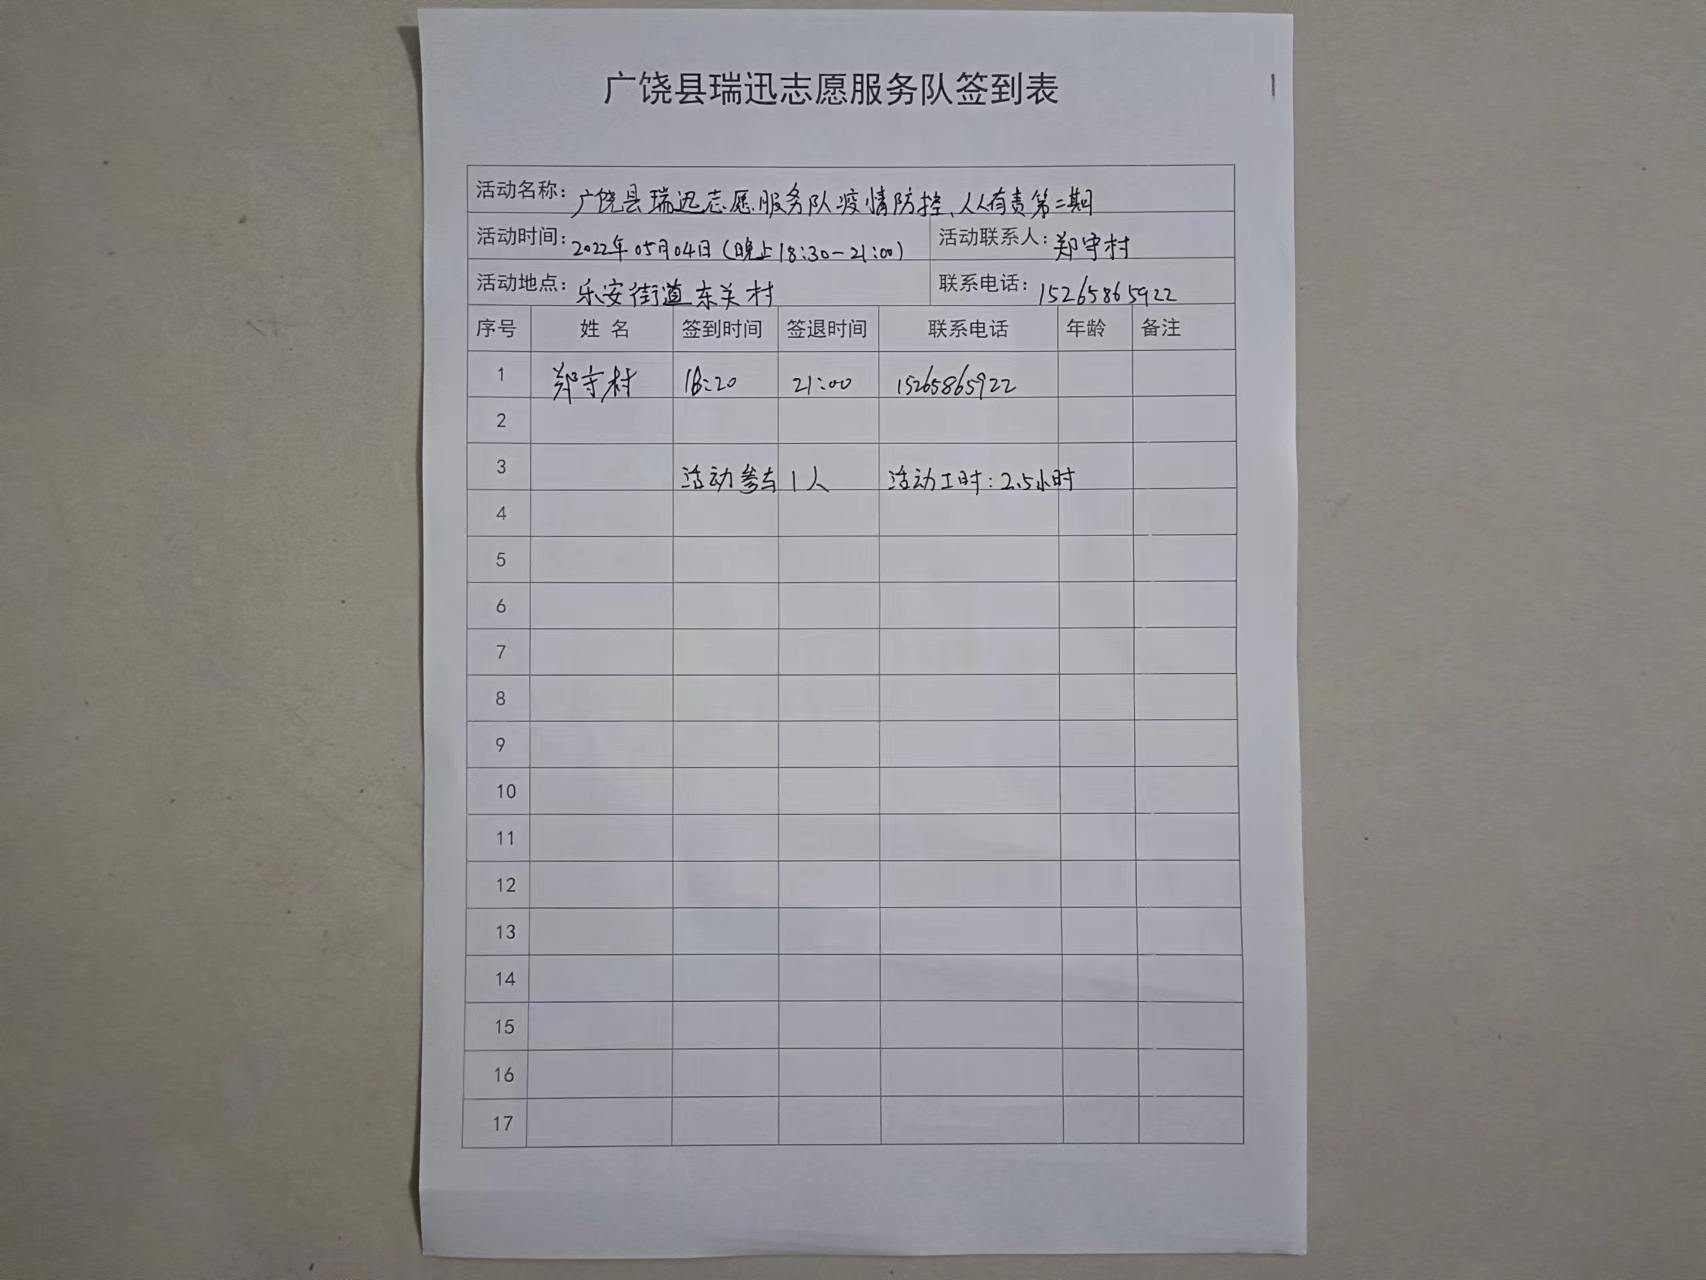 广饶县瑞迅志愿服务队签到表
活动名称：广饶县瑞迅志愿服务队疫情防控、人人有责第二期
活动时间：2022年05月04日（晚上18:30-21:00） 活动联系人：郑守村
活动地点：乐安街道东关村 联系电话：15265865922
序号 姓 名 签到时间 签退时间 联系电话 年龄 备注
1 郑守村 18:20 21:00 15265865922
2
3 活动参与1人 活动工时：2.5小时
4
5
6
7
8
9
10
11
12
13
14
15
16
17